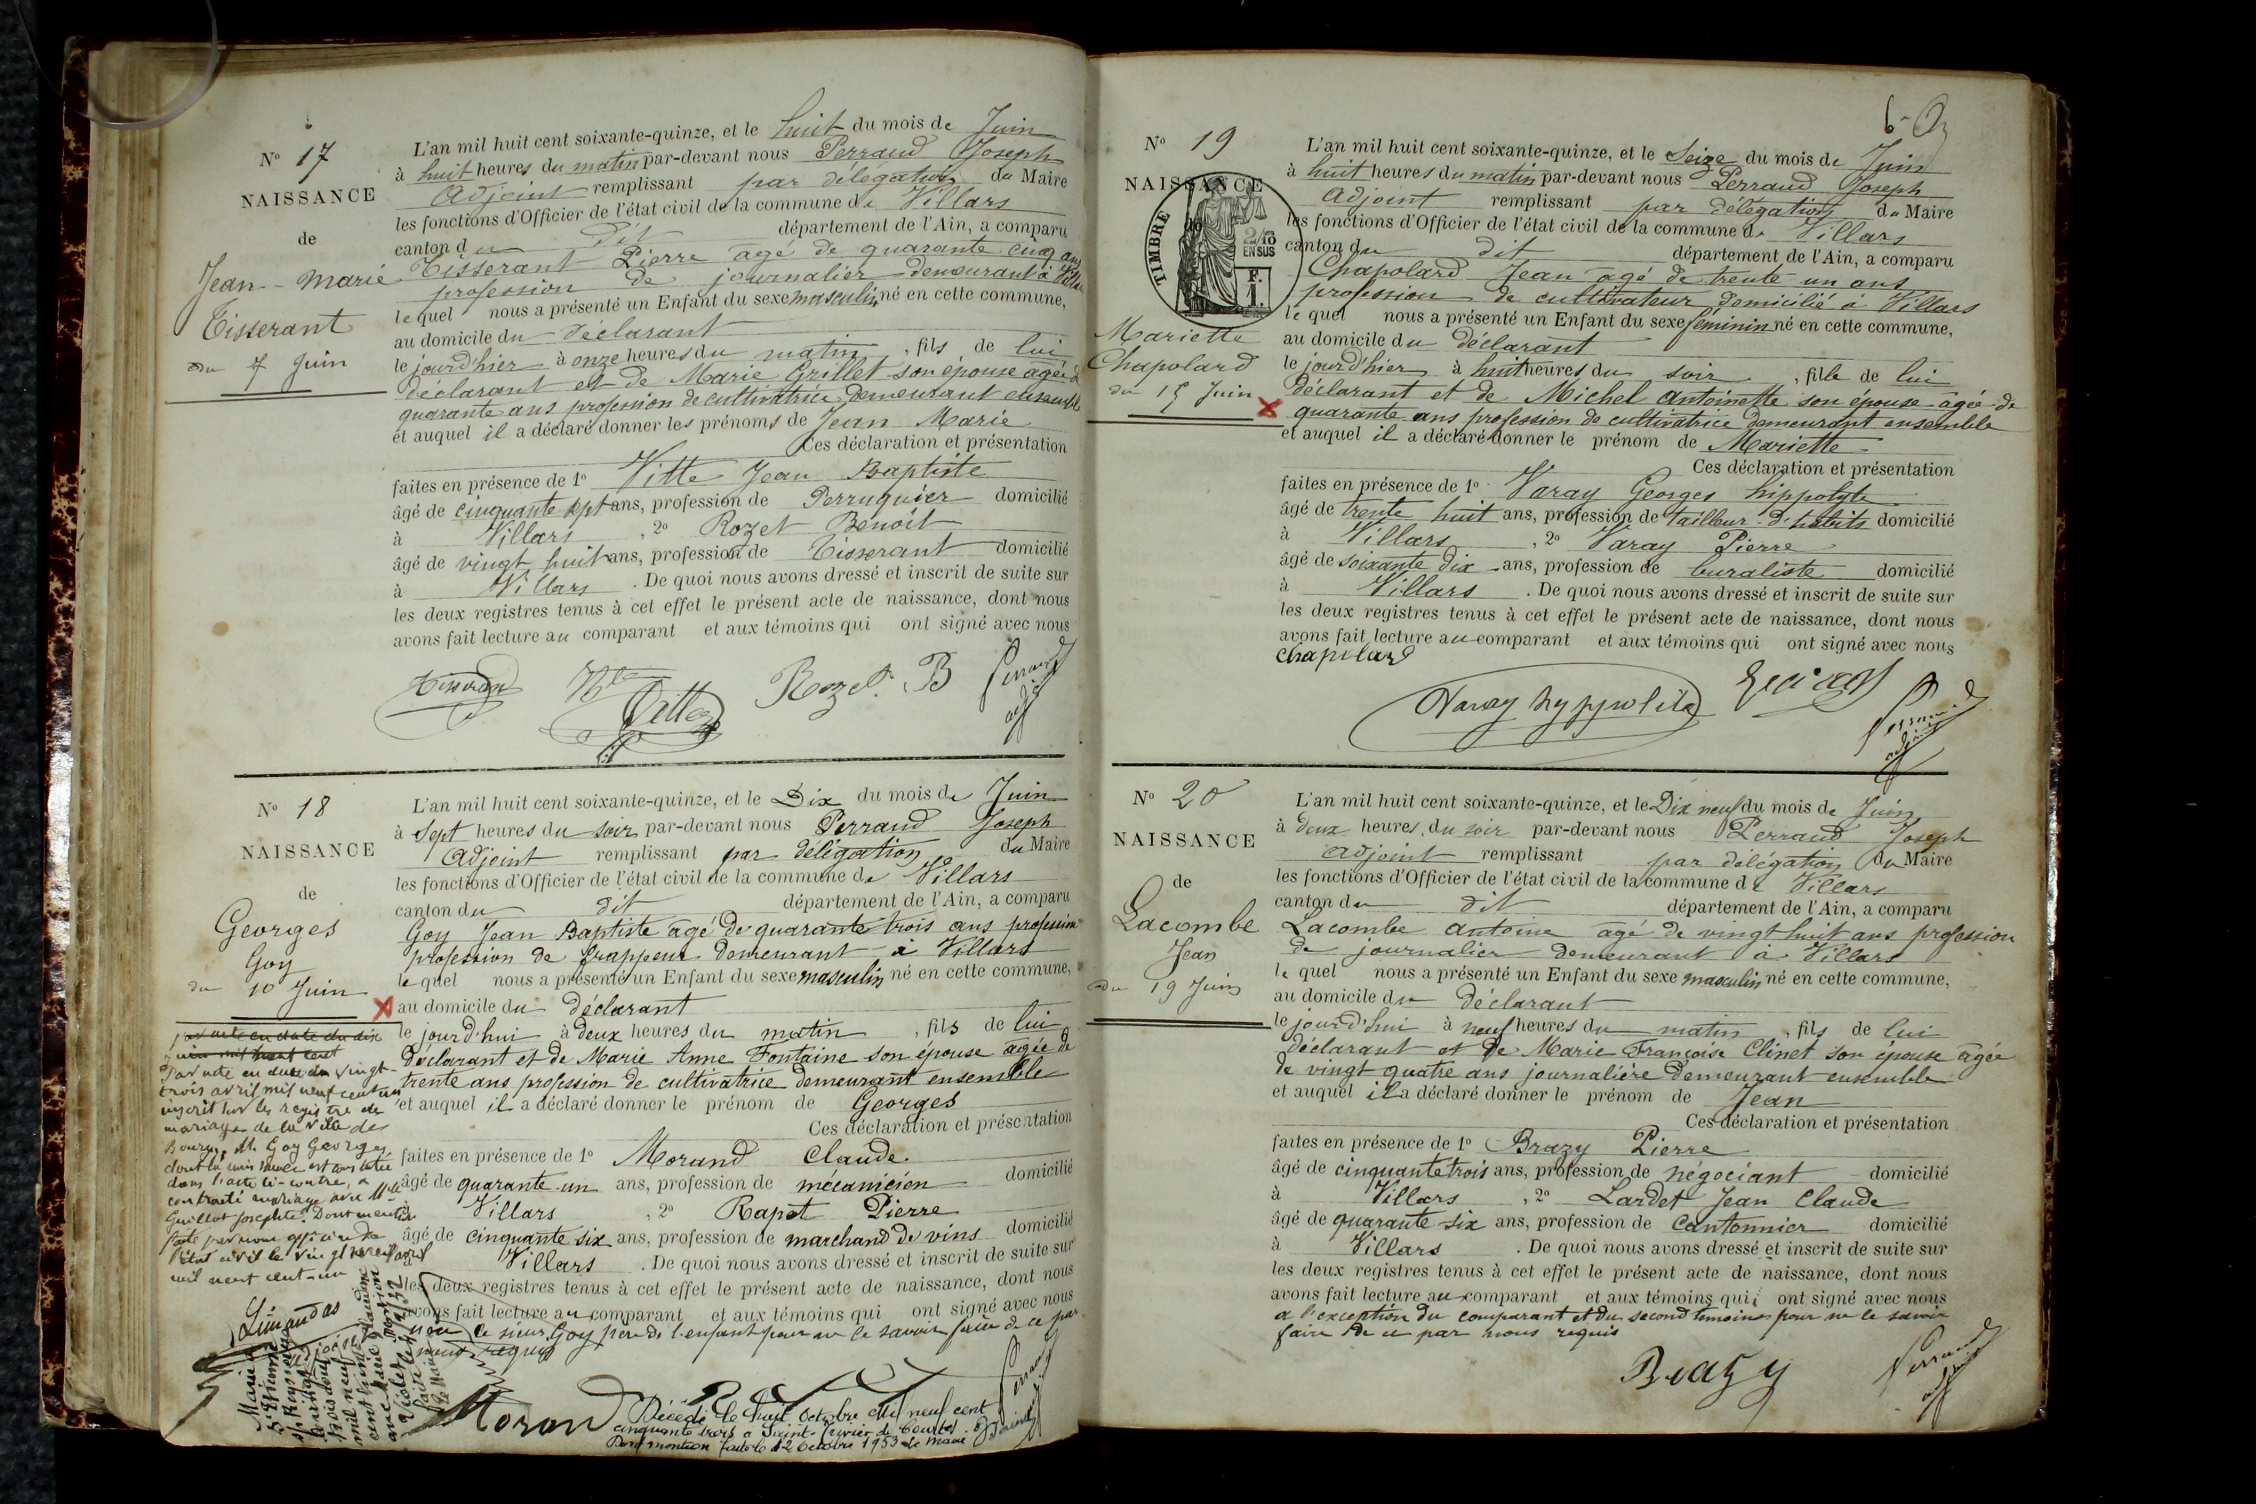 N° 17
NAISSANCE
de
Jean-Marie
Tisserant
du 7 Juin
L'an mil huit cent soixante-quinze, et le huit du mois de Juin
à huit heures du matin par-devant nous Perraud Joseph
Adjoint remplissant par délégation du Maire
les fonctions d'Officier de l'état civil de la commune de Villars
canton du dit département de l'Ain, a comparu
Tisserant Pierre agé de quarante cinq ans
profession de journalier demeurant à Villars
lequel nous a présenté un Enfant du sexe masculin né en cette commune,
au domicile du déclarant
le jourd'hier à onze heures du matin, fils de lui
déclarant et de Marie Grillet son épouse agée de
quarante ans profession de cultivatrice demeurant ensemble
et auquel il a déclaré donner les prénoms de Jean Marie
Ces déclaration et présentation
faites en présence de 1° Vitte Jean Baptiste
âgé de cinquante sept ans, profession de Perruquier domicilié
à Villars, 2° Rozet Benoit
âgé de vingt huit ans, profession de Tisserant domicilié
à Villars. De quoi nous avons dressé et inscrit de suite sur
les deux registres tenus à cet effet le présent acte de naissance, dont nous
avons fait lecture au comparant et aux témoins qui ont signé avec nous
Tisserand Vitte Rozet. B Perraud adj
N° 18
NAISSANCE
de
Georges
Goy
du 10 Juin
L'an mil huit cent soixante-quinze, et le Dix du mois de Juin
à Sept heures du soir par-devant nous Perraud Joseph
Adjoint remplissant par délégation du Maire
les fonctions d'Officier de l'état civil de la commune de Villars
canton du dit département de l'Ain, a comparu
Goy Jean Baptiste agé de quarante trois ans profession
profession de frappeur demeurant à Villars
lequel nous a présenté un Enfant du sexe masculin né en cette commune,
au domicile du déclarant
le jourd'hui à deux heures du matin, fils de lui
déclarant et de Marie Anne Fontaine son épouse agée de
trente ans profession de cultivatrice demeurant ensemble
et auquel il a déclaré donner le prénom de Georges
Ces déclaration et présentation
faites en présence de 1° Morand Claude
âgé de quarante un ans, profession de mécanicien domicilié
à Villars, 2° Rapet Pierre
âgé de cinquante six ans, profession de marchand de vins domicilié
à Villars. De quoi nous avons dressé et inscrit de suite sur
les deux registres tenus à cet effet le présent acte de naissance, dont nous
avons fait lecture au comparant et aux témoins qui ont signé avec nous
non le sieur Goy père de l'enfant pour ne le savoir faire de ce par
nous requis
par acte en date du dix
juin mil huit cent
Par acte en date du vingt-
trois avril mil neuf cent un
inscrit sur les registre de
mariage de la ville de
Bourg, M. Goy Georges
dont la naissance est constatée
dans l'acte ci-contre, a
contracté mariage avec Mlle
Guillot Josephte. Dont mention
faite par nous officier de
l'état civil le vingt neuf avril
mil neuf cent un
Morand Perraud adj
Décédé le huit Octobre mil neuf cent
cinquante trois à Saint-Trivier de Courtes
Dont mention faite le 12 Octobre 1953 Le Maire
N° 19
NAISSANCE
de
TIMBRE
2/10
EN SUS
F.
1.
Mariette
Chapolard
du 15 Juin
6-
L'an mil huit cent soixante-quinze, et le Seize du mois de Juin
à huit heures du matin par-devant nous Perraud Joseph
Adjoint remplissant par délégation du Maire
les fonctions d'Officier de l'état civil de la commune de Villars
canton du dit département de l'Ain, a comparu
Chapolard Jean agé de trente un ans
profession de cultivateur domicilié à Villars
lequel nous a présenté un Enfant du sexe féminin né en cette commune,
au domicile du déclarant
le jourd'hier à huit heures du soir, fille de lui
déclarant et de Michel Antoinette son épouse agée de
quarante ans profession de cultivatrice demeurant ensemble
et auquel il a déclaré donner le prénom de Mariette
Ces déclaration et présentation
faites en présence de 1° Varay Georges hippolyte
âgé de trente huit ans, profession de tailleur d'habits domicilié
à Villars, 2° Varay Pierre
âgé de soixante dix ans, profession de buraliste domicilié
à Villars. De quoi nous avons dressé et inscrit de suite sur
les deux registres tenus à cet effet le présent acte de naissance, dont nous
avons fait lecture au comparant et aux témoins qui ont signé avec nous
chapolard
Varay hyppolite Perraud adj
N° 20
NAISSANCE
de
Lacombe
Jean
du 19 Juin
L'an mil huit cent soixante-quinze, et le Dix neuf du mois de Juin
à deux heures du soir par-devant nous Perraud Joseph
Adjoint remplissant par délégation du Maire
les fonctions d'Officier de l'état civil de la commune de Villars
canton du dit département de l'Ain, a comparu
Lacombe Antoine agé de vingt huit ans profession
de journalier demeurant à Villars
lequel nous a présenté un Enfant du sexe masculin né en cette commune,
au domicile du déclarant
le jourd'hui à neuf heures du matin, fils de lui
déclarant et de Marie Françoise Clinet son épouse agée
de vingt quatre ans journalière demeurant ensemble
et auquel il a déclaré donner le prénom de Jean
Ces déclaration et présentation
faites en présence de 1° Brazy Pierre
âgé de cinquante trois ans, profession de négociant domicilié
à Villars, 2° Lardet Jean Claude
âgé de quarante six ans, profession de Cantonnier domicilié
à Villars. De quoi nous avons dressé et inscrit de suite sur
les deux registres tenus à cet effet le présent acte de naissance, dont nous
avons fait lecture au comparant et aux témoins qui ont signé avec nous
a l'exception du comparant et du second temoins pour ne le savoir
faire de ce par nous requis
Brazy Perraud adj